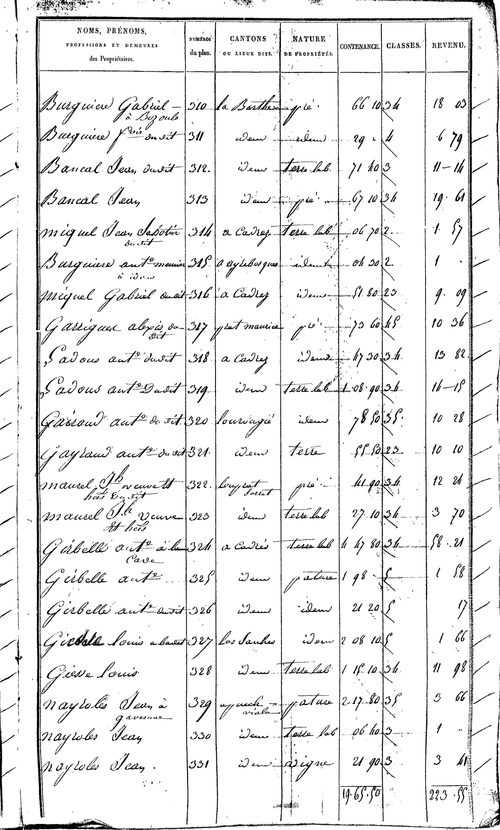 NOMS, PRÉNOMS, PROFESSIONS ET DEMEURES des Propriétaires. NUMÉROS du plan. CANTONS OU LIEUX DITS. NATURE DE PROPRIÉTÉS. CONTENANCE. CLASSES. REVENU.
Burguiere Gabriel à Bozouls 310 la Barthe pré 66 10 34 18 03
Burguiere f.ois dudit 311 idem idem 29 4 6 79
Bancal Jean dudit 312 idem terre lab 71 40 3 11 14
Bancal Jean 313 idem pré 67 10 34 19 61
miquel Jean Sabotier dudit 314 a Cadres terre lab 06 70 2 1 57
Burguiere ant.e maurice à idem 315 idem 04 30 2 1
miquel Gabriel dudit 316 a Cadres idem 51 80 23 9 09
Garrigues alexis dudit 317 prat maurice pré 73 60 45 10 36
Ladous ant.e dudit 318 a Cadres idem 47 30 34 13 82
Ladous ant.e Dudit 319 idem terre lab 1 08 90 34 14 15
Gairaud ant.e dudit 320 idem 78 50 35 10 28
Gayraud ant.e dudit 321 idem terre 55 50 23 10 10
maurel Jh veuve et hoirs Dudit 322 pré 41 90 34 12 24
maurel Jh Veuve et hoirs 323 idem terre lab 27 10 34 3 70
Girbelle ant.e à la Cave 324 a Cadres terre lab 4 67 80 34 58 21
Girbelle ant.e 325 idem pature 1 98 5 1 58
Girbelle ant.e dudit 326 idem idem 21 20 5 17
louis 327 las idem 2 08 10 5 1 66
louis 328 idem terre lab 1 15 10 34 11 98
nayroles Jean à gavernac 329 pature 2 17 80 35 3 66
nayroles Jean 330 idem terre lab 06 40 3 1
nayroles Jean. 331 idem vigne 21 90 3 3 41
19.65.50 223.55